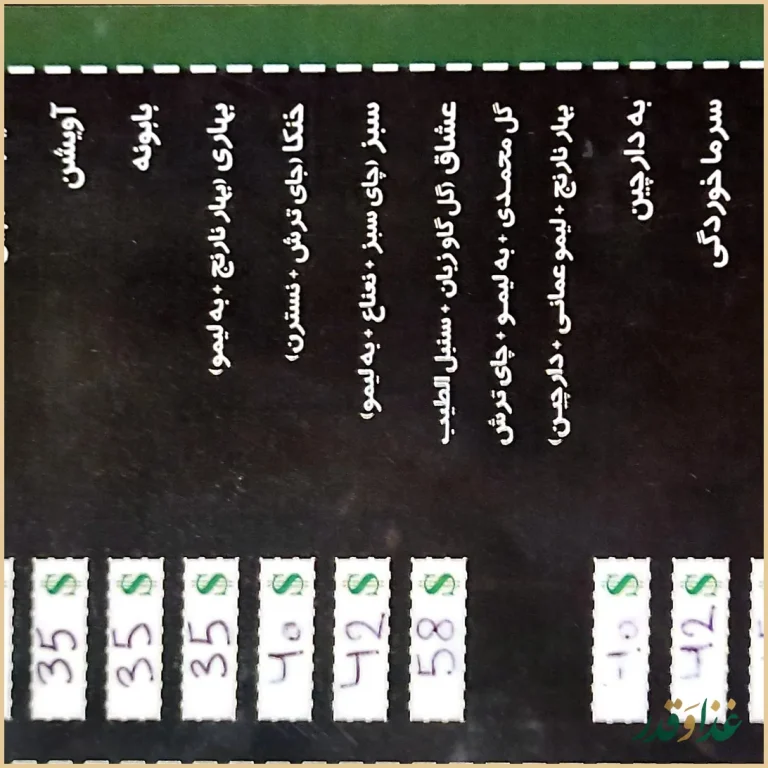 آویشن 35 $
بابونه 35 $
بهاری (بهار نارنج + به لیمو) 35 $
خنکا (چای ترش + نسترن) 40 $
سبز (چای سبز + نعناع + به لیمو) 42 $
عشاق (گل گاو زبان + سنبل الطیب 58 $
گل محمدی + به لیمو + چای ترش
بهار نارنج + لیمو عمانی + دارچین)
به دارچین $
سرما خوردگی 42 $
غذا و قدر